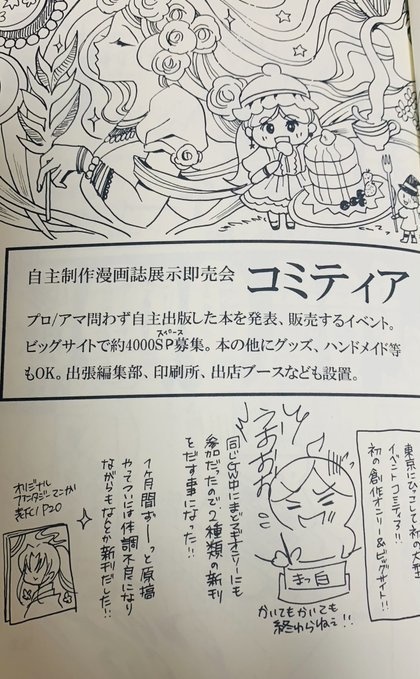 自主制作漫画誌展示即売会 コミティア
プロ/アマ問わず自主出版した本を発表、販売するイベント。
ビッグサイトで約4000SP募集。本の他にグッズ、ハンドメイド等
スペース
もOK。出張編集部、印刷所、出店ブースなども設置。
東京にひこしして初の大型
イベントコミティア!!
初の創作オンリー&ビッグサイト!!
うおおおお
まっ白
かいてもかいても
終わらねぇ!!
同じGW中にまどろギオンリーにも
参加だったので2種類の新刊
をだす事になった!!
1ヶ月間ずーっと原稿
やってついには体調不良になり
ながらもなんとか新刊だした!!
オリジナル
ファンタジーてかい
表FC/P20